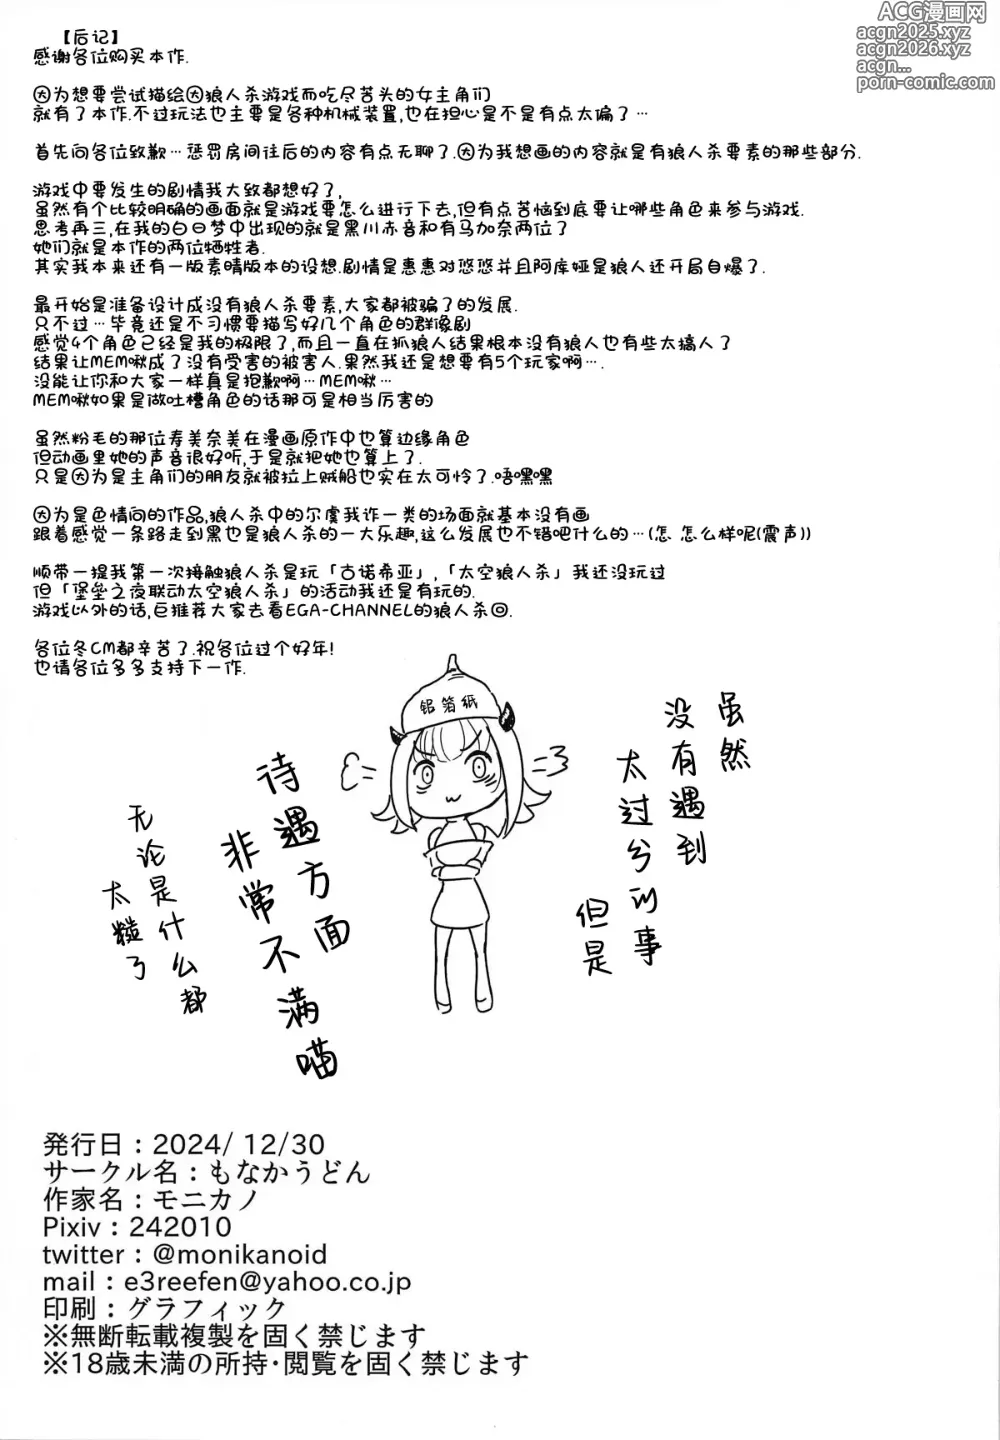 【后记】
感谢各位购买本作.
因为想要尝试描绘因狼人杀游戏而吃尽苦头的女主角们
就有了本作.不过玩法也主要是各种机械装置,也在担心是不是有点太偏了…
首先向各位致歉…惩罚房间往后的内容有点无聊了.因为我想画的内容就是有狼人杀要素的那些部分.
游戏中要发生的剧情我大致都想好了,
虽然有个比较明确的画面就是游戏要怎么进行下去,但有点苦恼到底要让哪些角色来参与游戏.
思考再三,在我的白日梦中出现的就是黑川赤音和有马加奈两位了
她们就是本作的两位牺牲者.
其实我本来还有一版素晴版本的设想.剧情是惠惠对悠悠并且阿库娅是狼人还开局自爆了.
最开始是准备设计成没有狼人杀要素,大家都被骗了的发展.
只不过…毕竟还是不习惯要描写好几个角色的群像剧
感觉4个角色已经是我的极限了,而且一直在抓狼人结果根本没有狼人也有些太搞人了
结果让MEM啾成了没有受害的被害人.果然我还是想要有5个玩家啊….
没能让你和大家一样真是抱歉啊…MEM啾…
MEM啾如果是做吐槽角色的话那可是相当厉害的
虽然粉毛的那位寿美奈美在漫画原作中也算边缘角色
但动画里她的声音很好听,于是就把她也算上了.
只是因为是主角们的朋友就被拉上贼船也实在太可怜了.唔嘿嘿
因为是色情向的作品,狼人杀中的尔虞我诈一类的场面就基本没有画
跟着感觉一条路走到黑也是狼人杀的一大乐趣,这么发展也不错吧什么的…(怎 怎么样呢(震声))
顺带一提我第一次接触狼人杀是玩「古诺希亚」,「太空狼人杀」我还没玩过
但「堡垒之夜联动太空狼人杀」的活动我还是有玩的.
游戏以外的话,巨推荐大家去看EGA-CHANNEL的狼人杀回.
各位冬CM都辛苦了.祝各位过个好年!
也请各位多多支持下一作.
铝箔纸
虽然
没有遇到
太过分的事
但是
待遇方面
非常不满喵
无论是什么都
太糙了
発行日：2024/ 12/30
サークル名：もなかうどん
作家名：モニカノ
Pixiv：242010
twitter：@monikanoid
mail：e3reefen@yahoo.co.jp
印刷：グラフィック
※無断転載複製を固く禁じます
※18歳未満の所持･閲覧を固く禁じます
ACG漫画网
acgn2025.xyz
acgn2026.xyz
acgn...
porn-comic.com